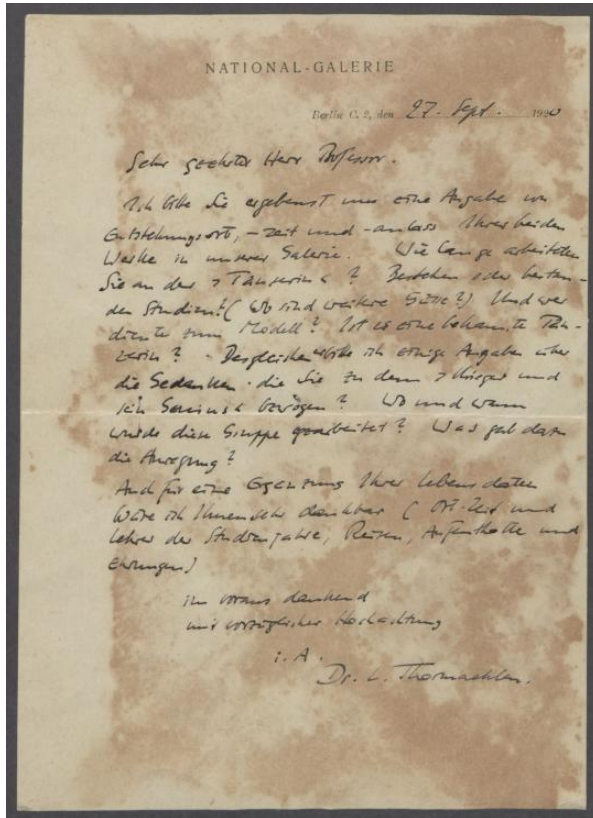 NATIONAL-GALERIE
Berlin C. 2, den 27. Sept. 1920
Sehr geehrter Herr Professor.
Ich bitte Sie ergebenst um eine Angabe von
Entstehungsort, -zeit und -anlass Ihrer beiden
Werke in unserer Galerie. Wie lange arbeiteten
Sie an der >Tänzerin<? Bestehen oder bestan-
den Studien? (Wo sind weitere Güsse?) Und wer
diente zum Modell? Ist es eine bekannte Tän-
zerin? - Desgleichen bitte ich einige Angaben über
die Gedanken die Sie zu dem >Krieger und
sein Genius< bewogen? Wo und wann
wurde diese Gruppe gearbeitet? Was gab dazu
die Anregung?
Auch für eine Ergänzung Ihrer Lebensdaten
wäre ich Ihnen sehr dankbar (Ort, Zeit und
Lehrer der Studienjahre, Reisen, Aufenthalte und
Ehrungen)
im voraus dankend
mit vorzüglicher Hochachtung
i. A.
Dr. L. Thormaehlen.